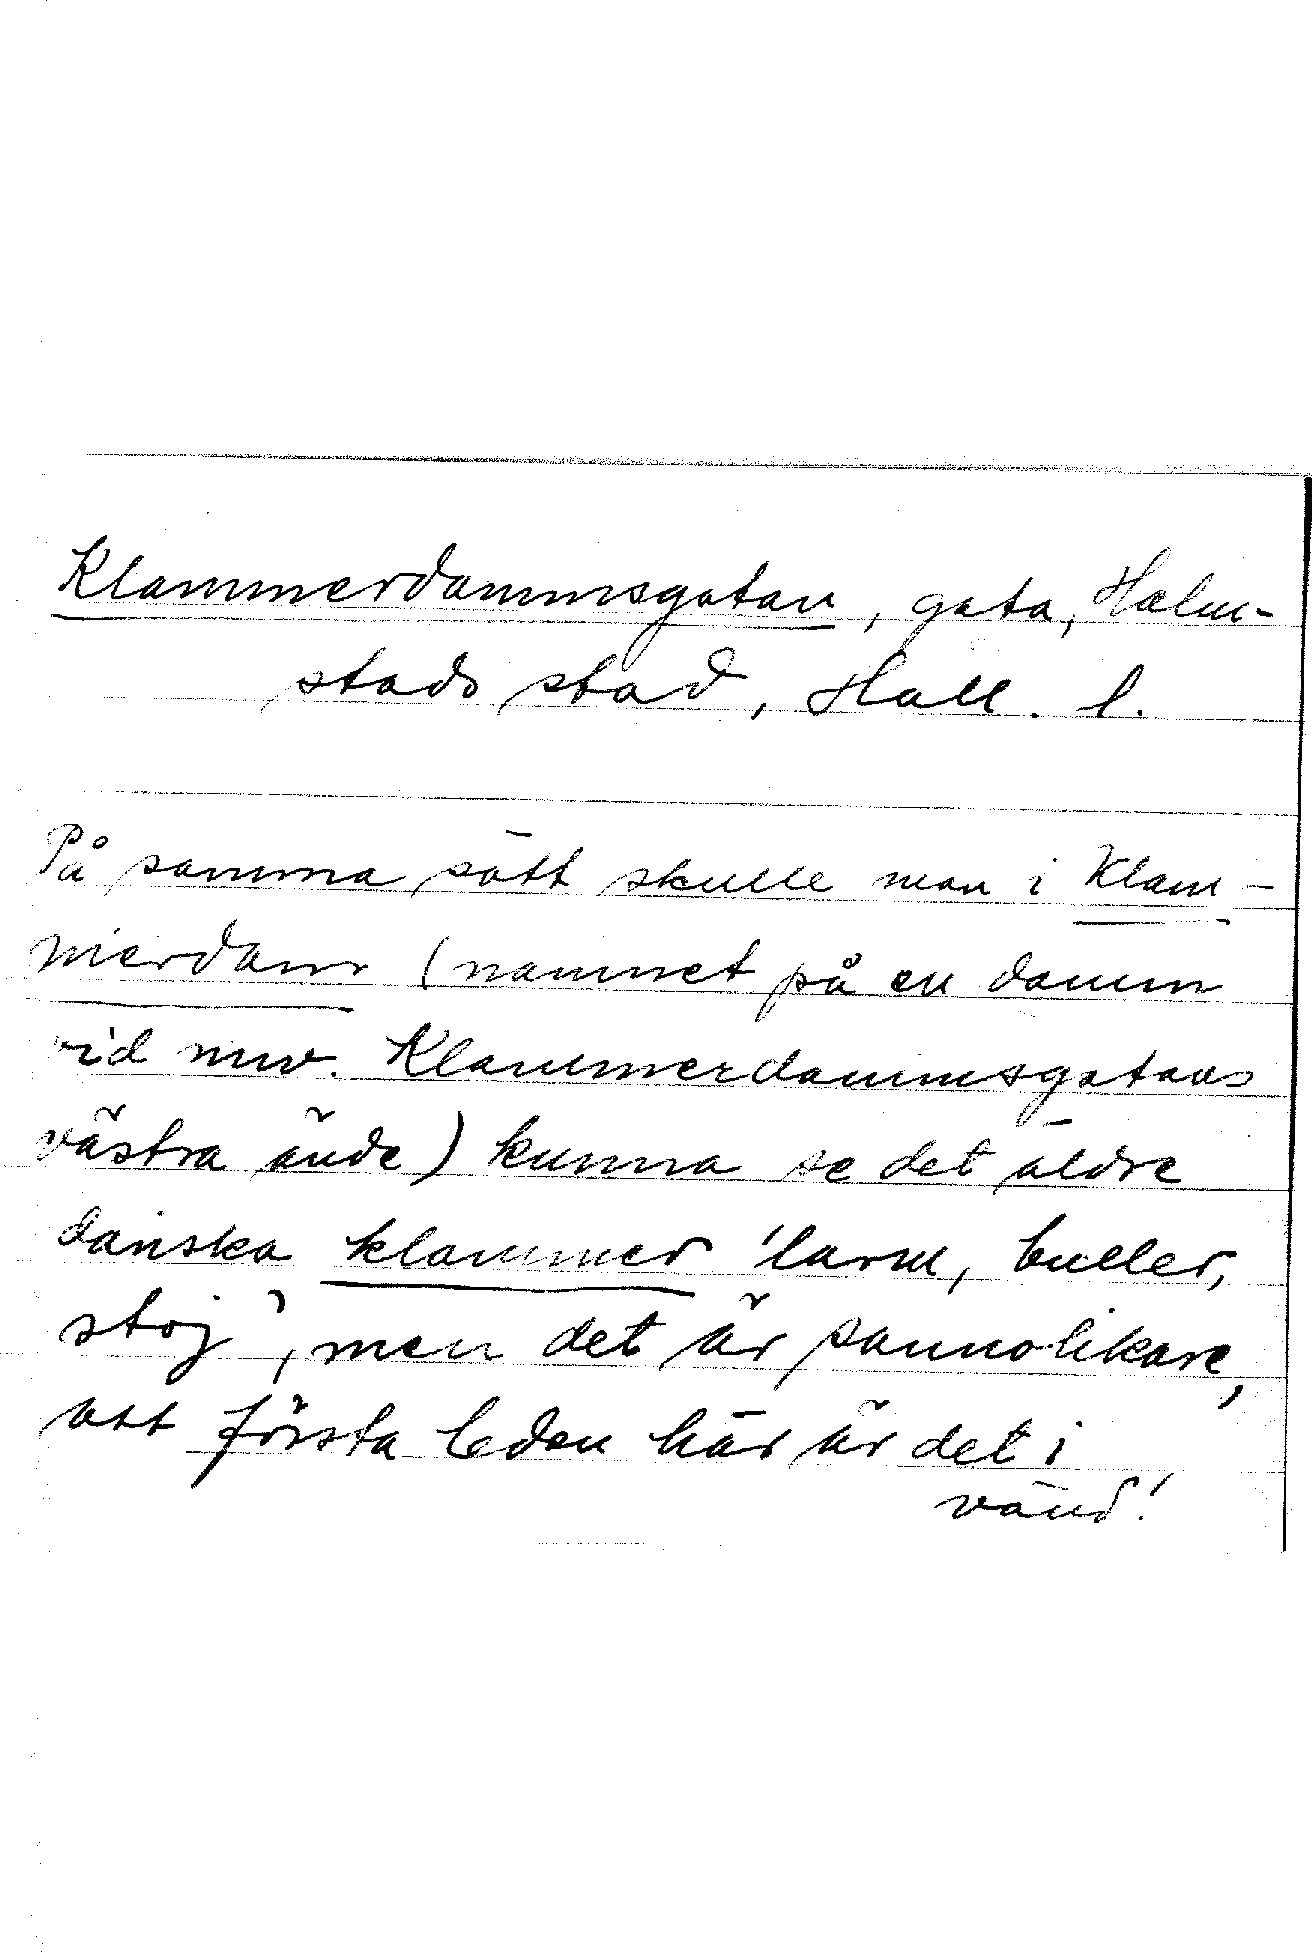 Klammerdammsgatan, gata, Halm-
stads stad, Hall. l.
På samma sätt skulle man i Klam-
merdam (namnet på en damm
vid nuv. Klammerdammsgatans
västra ände) kunna se det äldre
danska klammer 'larm, buller,
stoj', men det är sannolikare,
att första leden här är det i
vänd!